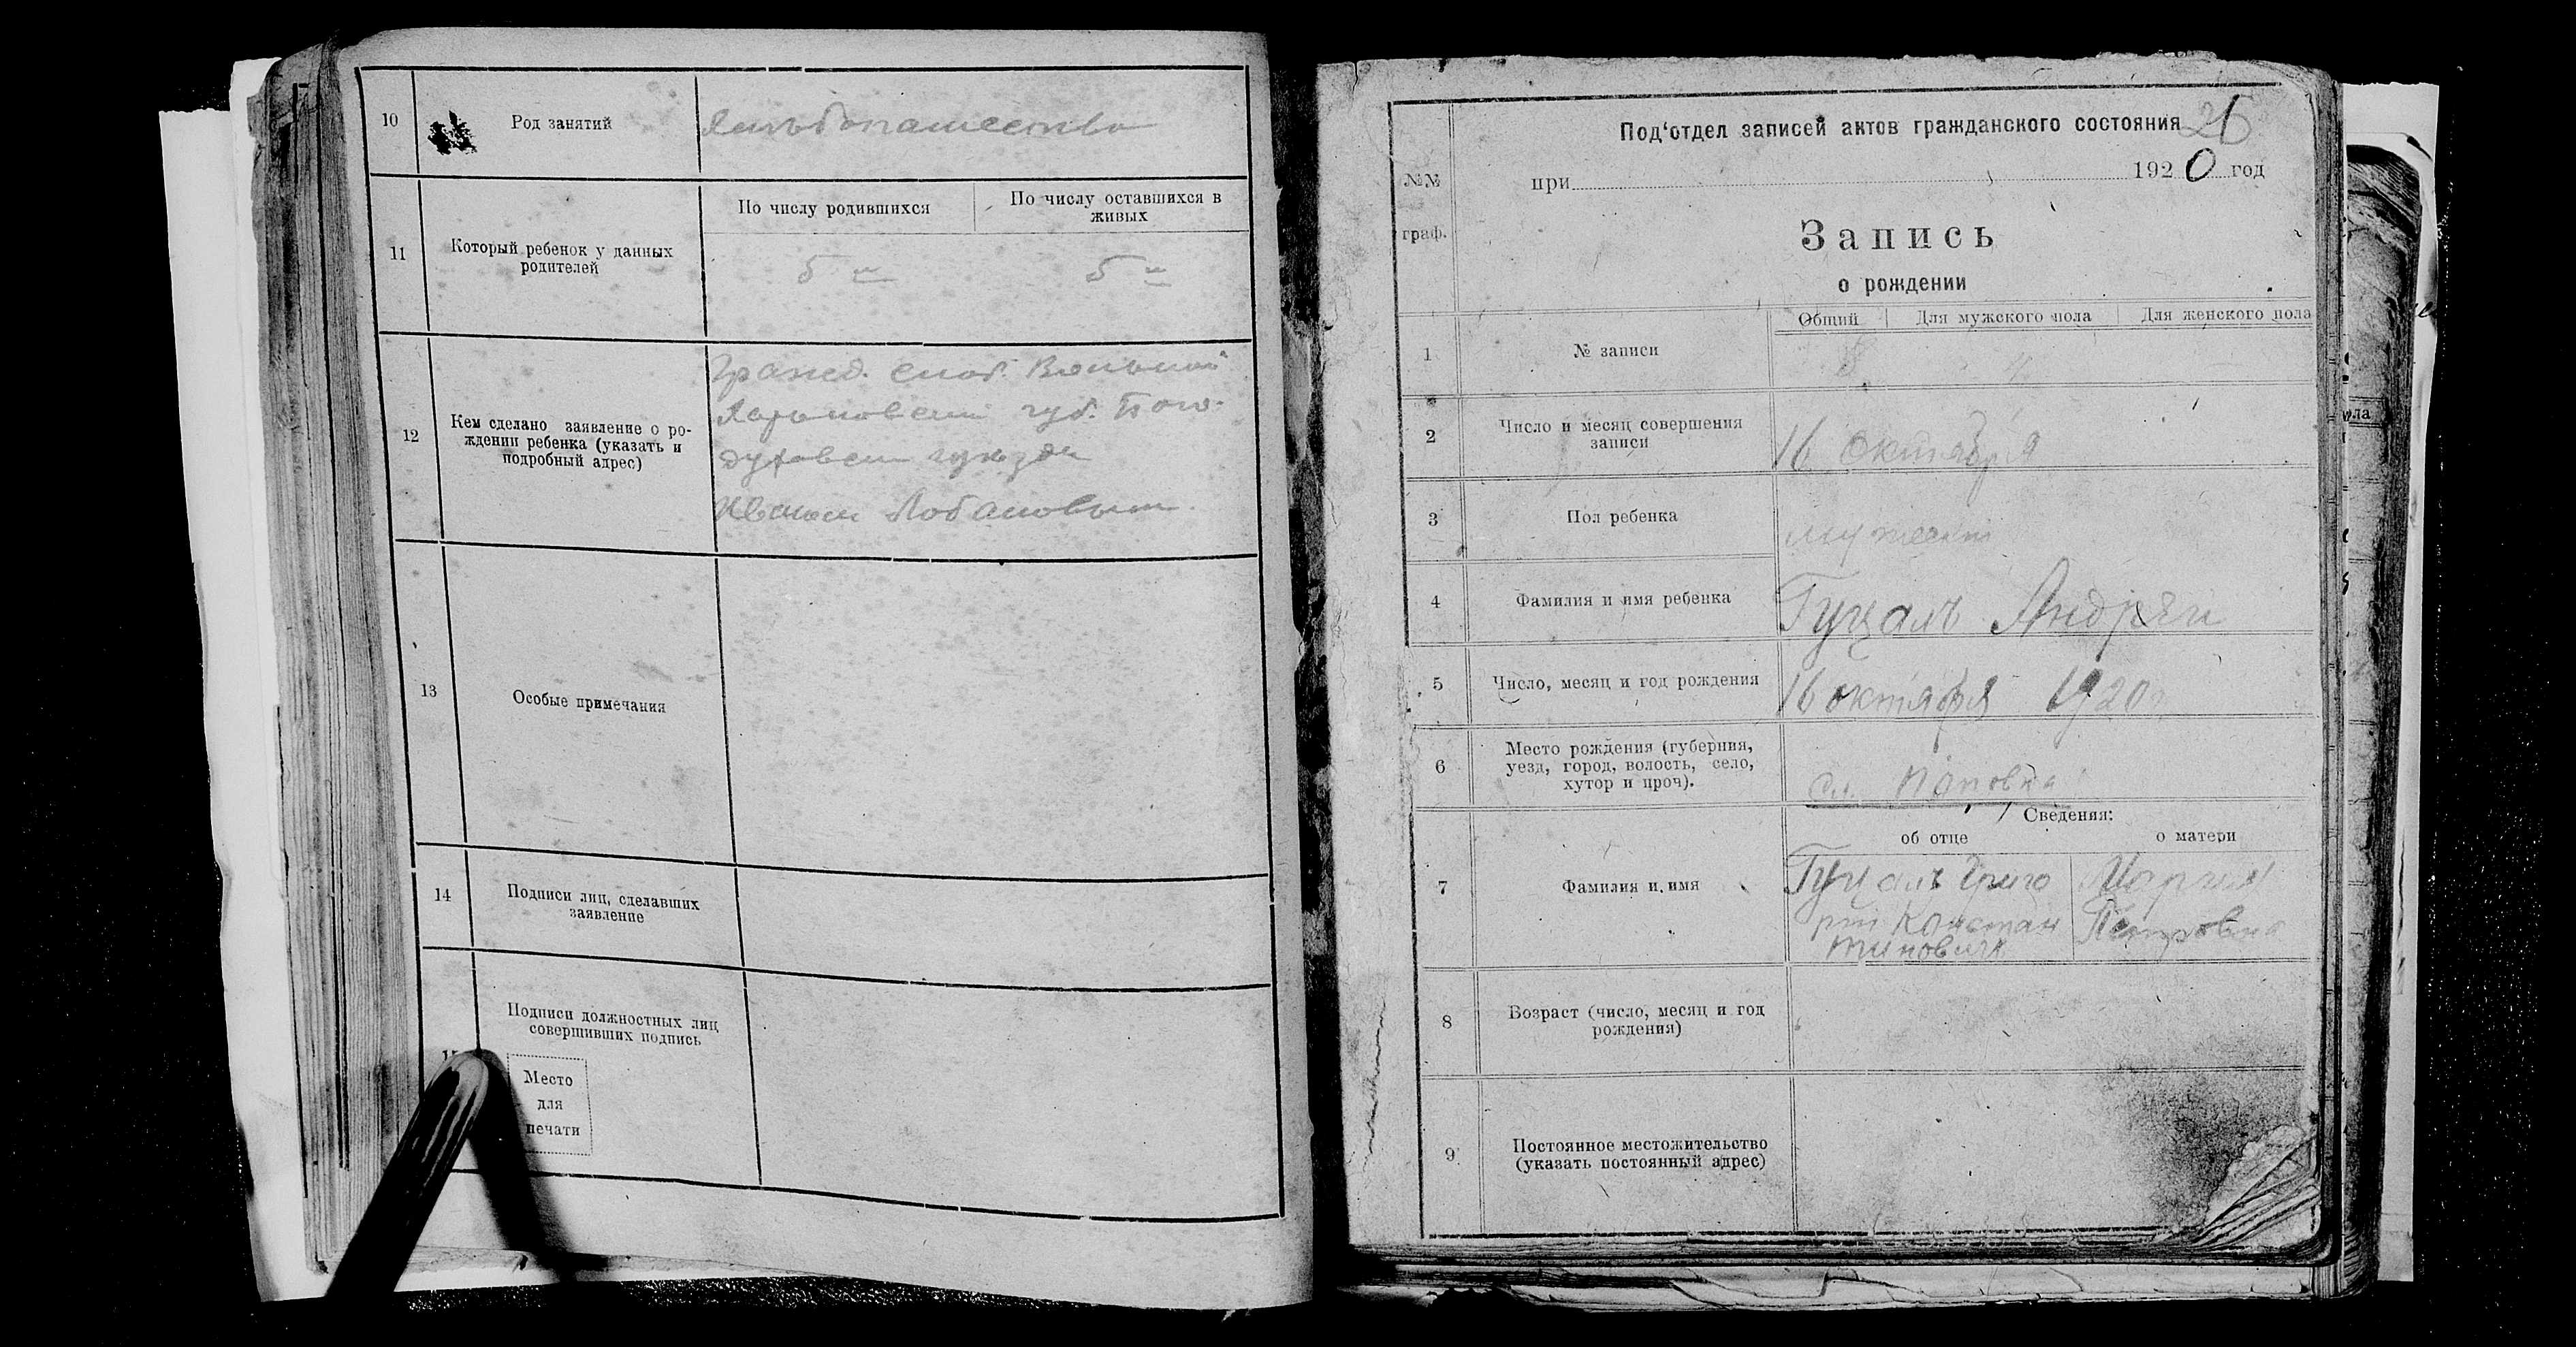 10
Род занятий
Хлѣбопашество
11
Который ребенок у данных
родителей
По числу родившихся
По числу оставшихся в
живых
5 й
5 й
12
Кем сделано заявление о ро-
ждении ребенка (указать и
подробный адрес)
Гражд. слоб. Вольной
Харьковской губ. Бого-
духовск уѣзда
Иваном Лобановым
13
Особые примечания
14
Подписи лиц, сделавших
заявление
Подписи должностных лиц
совершивших подпись
Место
для
печати
26
Под'отдел записей актов гражданского состояния
при 1920 год
№№
граф.
Запись
о рождении
Общий
Для мужского пола
Для женского пола
1
№ записи
2
Число и месяц совершения
записи
16 Октября
3
Пол ребенка
мужеск
4
Фамилия и имя ребенка
Гуцаль Андрей
5
Число, месяц и год рождения
16 октября 1920 г
6
Место рождения (губерния,
уезд, город, волость, село,
хутор и проч).
сл. Поповка
Сведения:
об отце
о матери
7
Фамилия и имя
Гуцаль Григо
рий Констан
тинович
Мария
Петровна
8
Возраст (число, месяц и год
рождения)
9
Постоянное местожительство
(указать постоянный адрес)